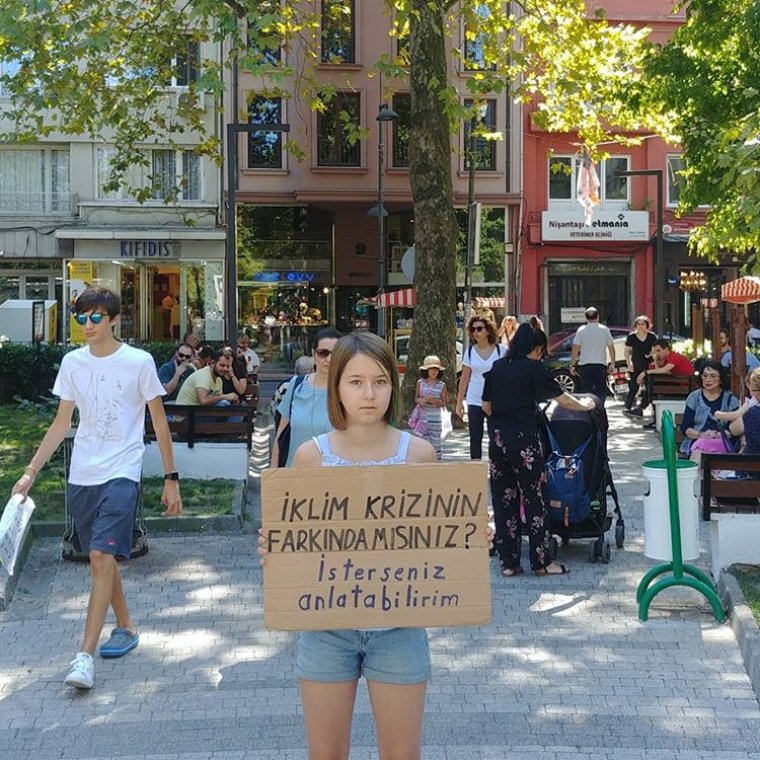 KIFIDIS
Nişantaşı Petmania
VETERİNER KLİNİĞİ
9
İKLİM KRİZİNİN
FARKINDA MISINIZ?
İsterseniz
anlatabilirim